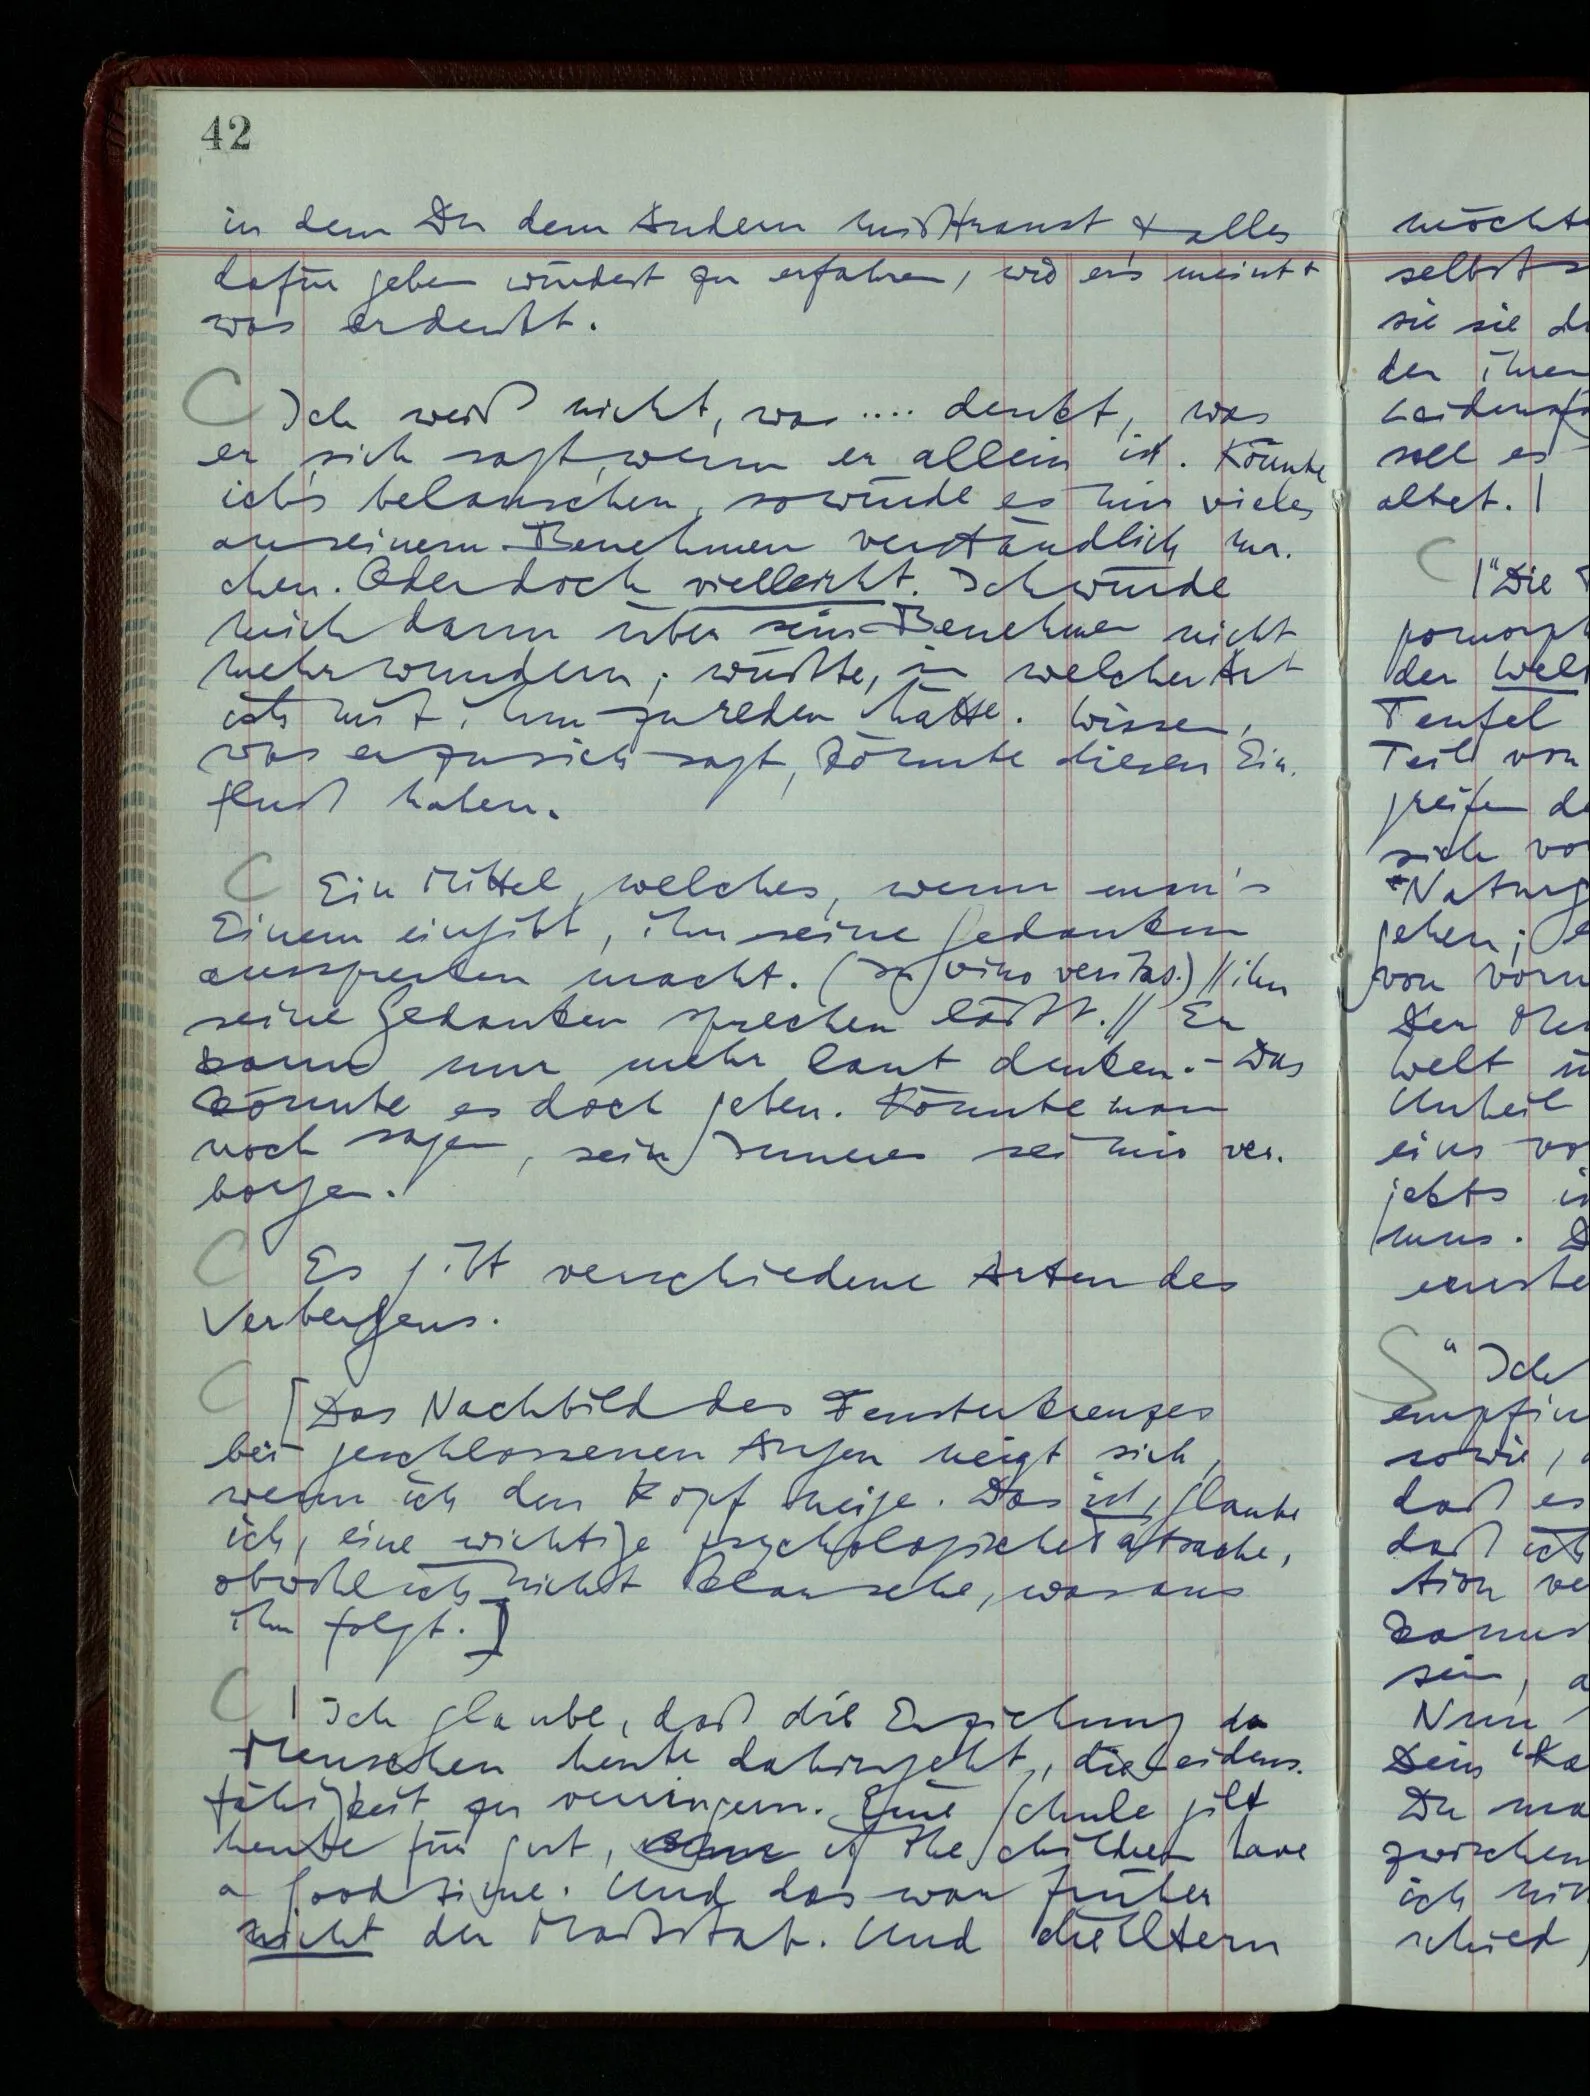 42
in dem Du dem Andern mißtraust & alles
dafür geben würdest zu erfahren, wie er's meint &
was er denkt.
Ich weiß nicht, was .... denkt, was
er sich sagt, wenn er allein ist. Könnte
ich's belauschen, so würde es mir vieles
an seinem Benehmen verständlich ma-
chen. Oder doch vielleicht. Ich würde
mich dann über sein Benehmen nicht
mehr wundern; wüßte, in welcher Art
ich mit ihm zu reden hätte. Wissen,
was er zu sich sagt, könnte diesen Ein-
fluß haben.
Ein Mittel, welches, wenn man's
Einem eingibt, ihn seine Gedanken
aussprechen macht. (In vino veritas.) // ihn
seine Gedanken sprechen läßt. // Er
kann nur mehr laut denken. – Das
könnte es doch geben. Könnte man
noch sagen, sein Inneres sei mir ver-
borgen.
Es gibt verschiedene Arten des
Verbergens.
[Das Nachbild des Fensterkreuzes
bei geschlossenen Augen neigt sich,
wenn ich den Kopf neige. Das ist, glaube
ich, eine wichtige psychologische Tatsache,
obwohl ich nicht klar sehe, was aus
ihr folgt.]
| Ich glaube, daß die Erziehung der
Menschen heute dahin geht, die Leidens-
fähigkeit zu verringern. Eine Schule gilt
heute für gut, if the children have
a good time. Und das war früher
nicht der Maßstab. Und die Eltern
möchte
selbst
sie sie
der ihren
soll es
altet. |
| "Die
der Welt
Teufel
Teil von
greifen
sich
"Naturg
gehen;
von vorn
Der
Welt
Unheil
eins
jekts
mus. D
" Ich
empfin
sowie,
daß es
daß ich
tion
sein, a
Nun
Dein "Ka
Du
zwischen
ich
schied,